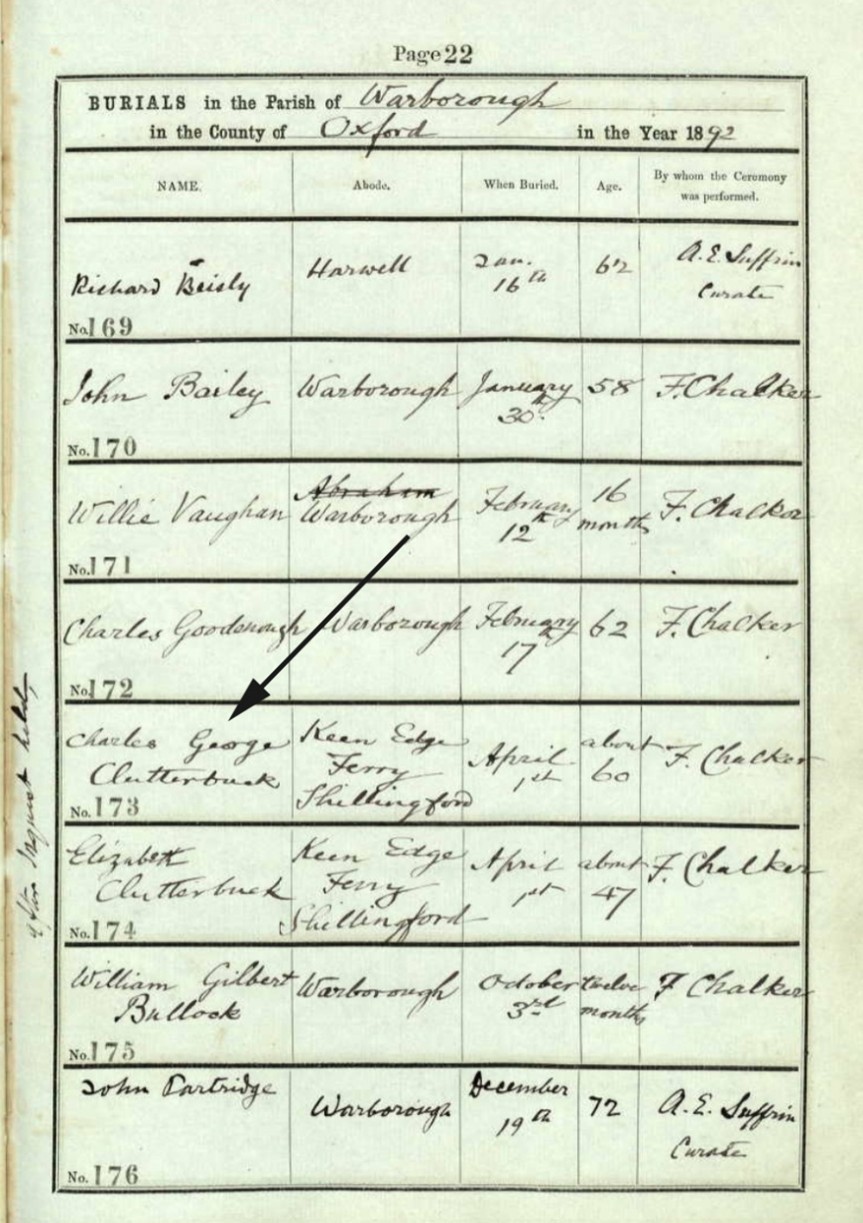 Page 22
BURIALS in the Parish of Warborough
in the County of Oxford in the Year 1892
NAME. Abode. When Buried. Age. By whom the Ceremony was performed.
Richard Beisly Harwell Jan. 16th 62 A.E. Suffrin Curate
No. 169
John Bailey Warborough January 30th 58 F. Chalker
No. 170
Willie Vaughan Abraham Warborough February 12th 16 months F. Chalker
No. 171
Charles Goodenough Warborough February 17th 62 F. Chalker
No. 172
Charles George Clutterbuck Keen Edge Ferry Shillingford April 1st about 60 F. Chalker
No. 173
Elizabeth Clutterbuck Keen Edge Ferry Shillingford April 1st about 47 F. Chalker
No. 174
William Gilbert Bullock Warborough October 3rd twelve months F Chalker
No. 175
John Partridge Warborough December 19th 72 A.E. Suffrin Curate
No. 176
after Inquest held